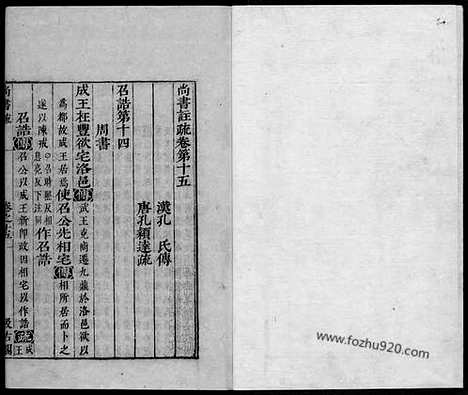 尚書註疏卷第十五
漢孔　氏傳
唐孔穎達疏
召誥第十四
周書
成王在豐欲宅洛邑傳武王克商遷九鼎於洛邑欲以
為都故成王居焉使召公先相宅傳相所居而卜之
遂以陳戒作召誥
召誥傳召公以成王新即政因相宅以作誥疏成王
尚書疏
卷之十五
汲古閣
www.fozhu920.com